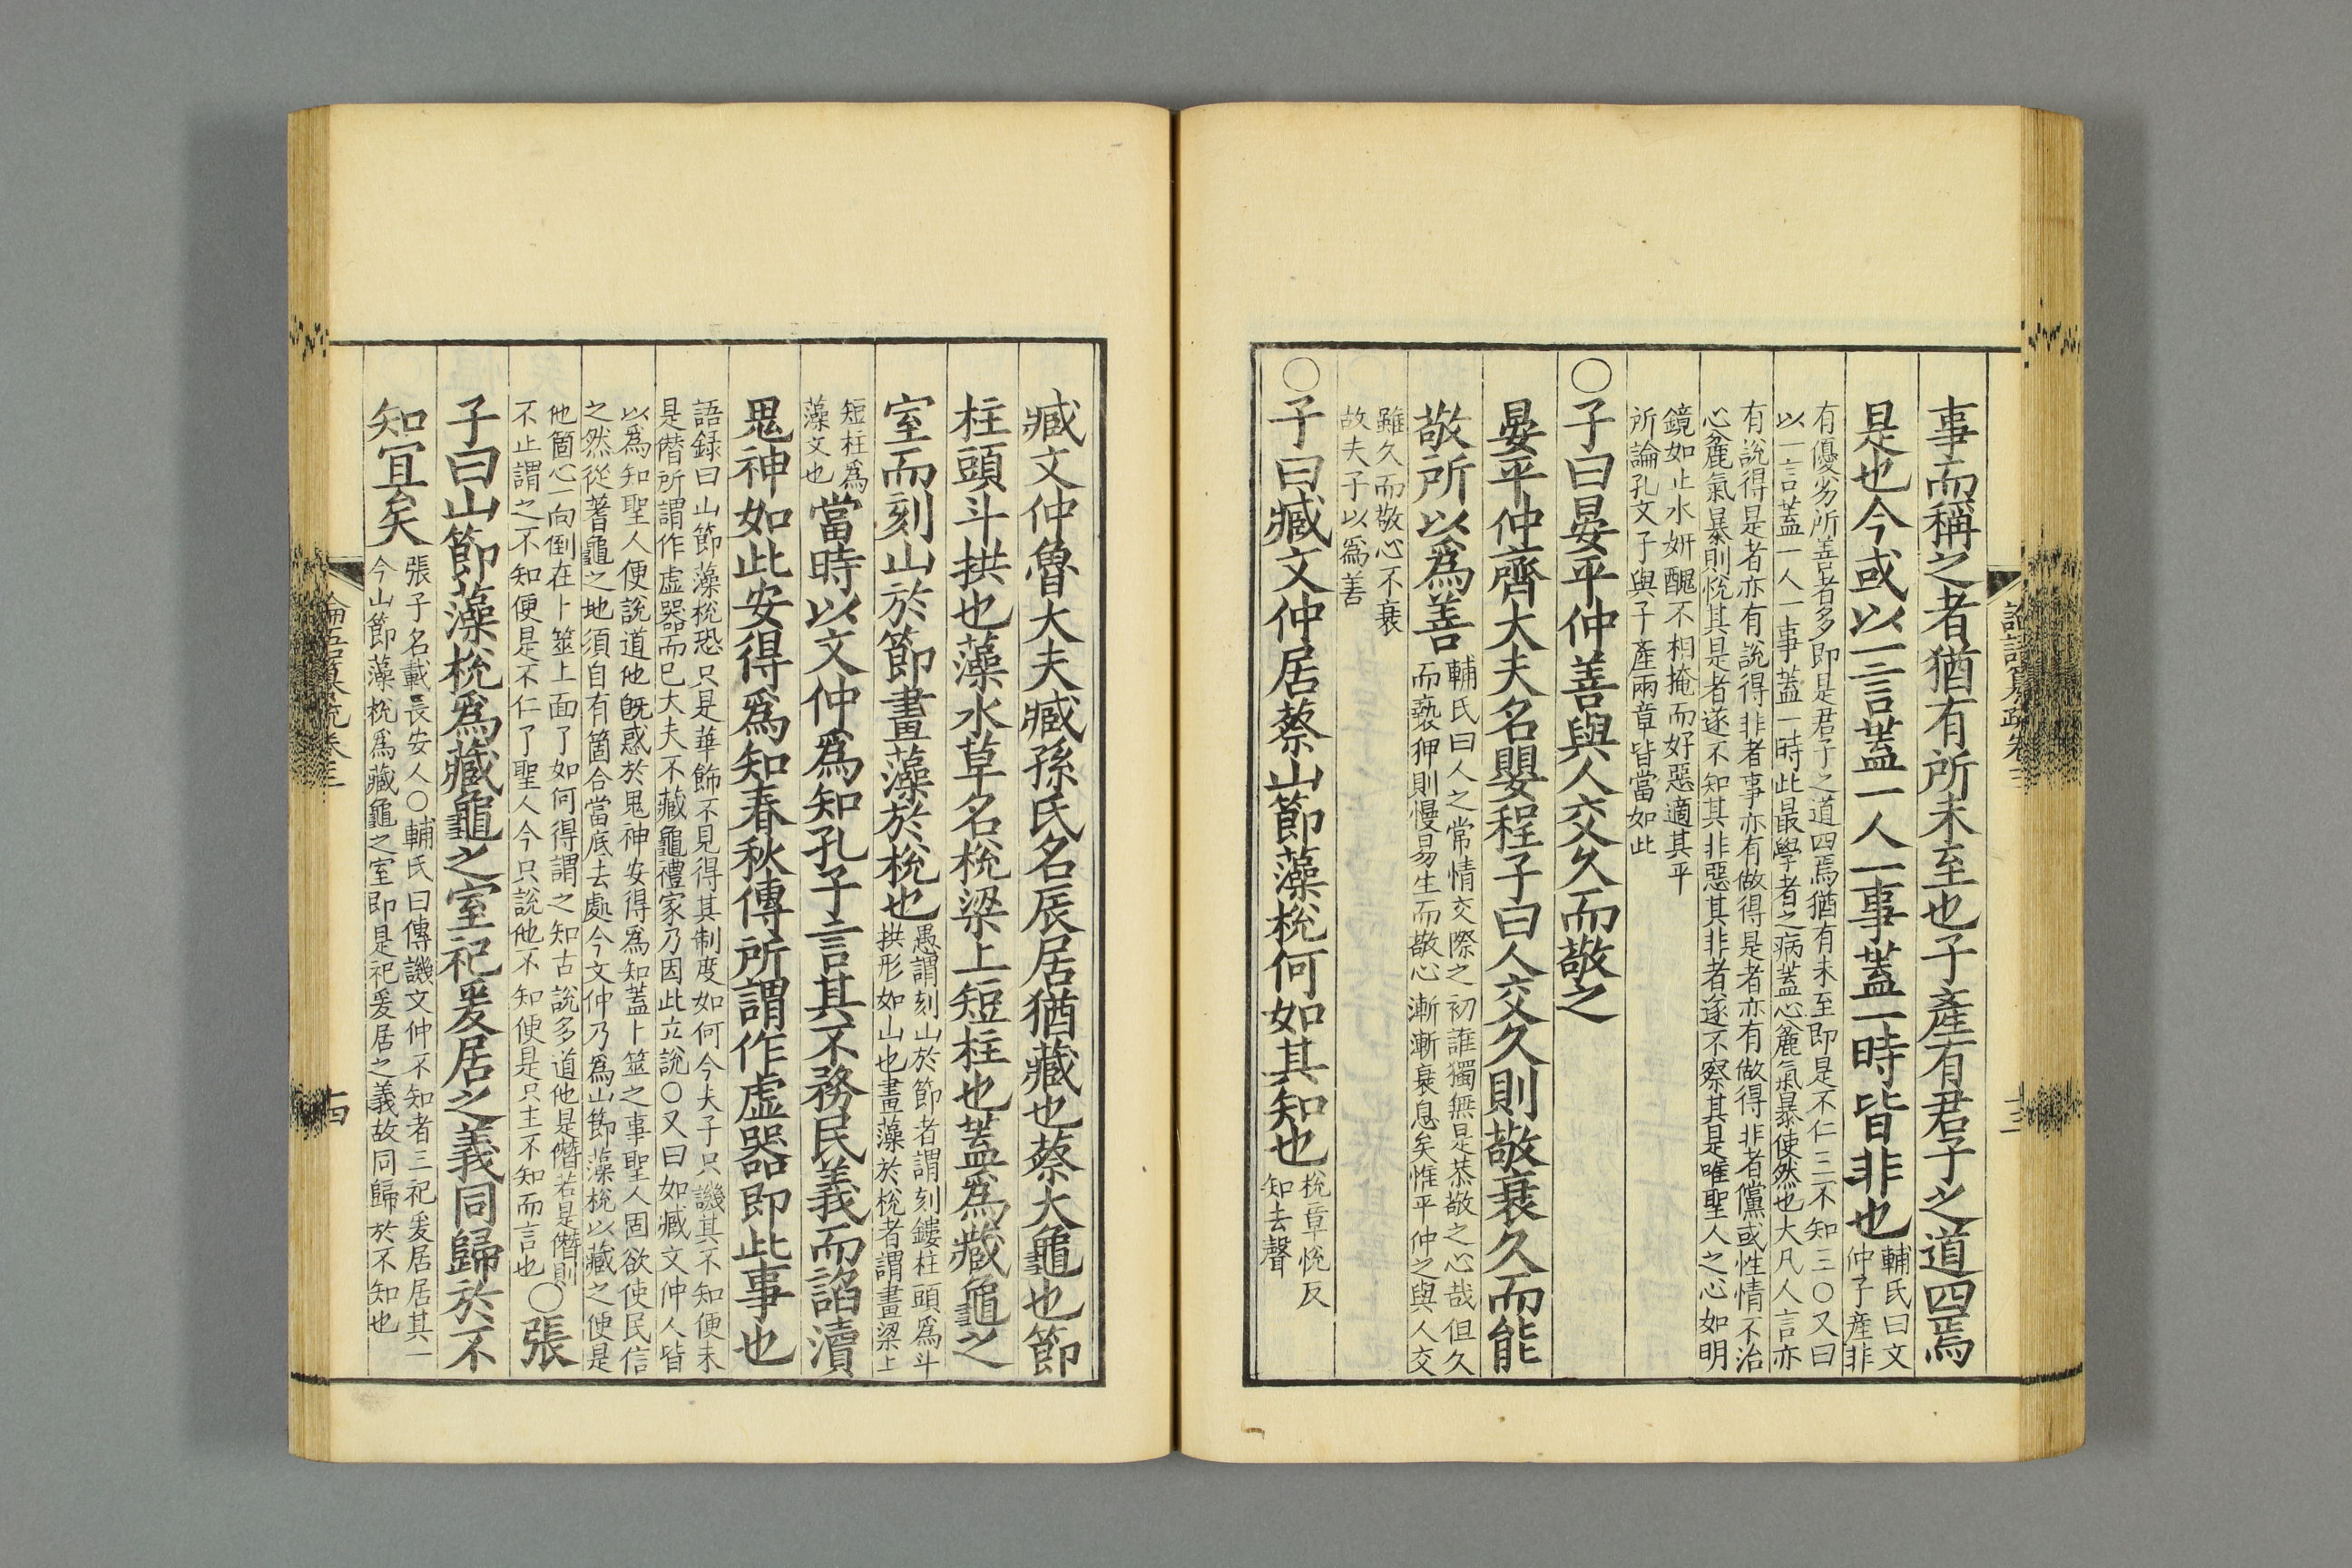 事而稱之者猶有所未至也子產有君子之道四焉
是也今或以一言蓋一人一事蓋一時皆非也
輔氏曰文
仲子產非
有優劣所善者多即是君子之道四焉猶有未至即是不仁三不知三〇又曰
以一言蓋一人一事蓋一時此最學者之病蓋心麄氣暴使然也大凡人言亦
有說得是者亦有說得非者事亦有做得是者亦有做得非者儻或性情不治
心麄氣暴則悅其是者遂不知其非惡其非者遂不察其是唯聖人之心如明
鏡如止水妍醜不相掩而好惡適其平
所論孔文子與子產兩章皆當如此
〇子曰晏平仲善與人交久而敬之
晏平仲齊大夫名嬰程子曰人交久則敬衰久而能
敬所以爲善
輔氏曰人之常情交際之初誰獨無是恭敬之心哉但久
而褻狎則慢易生而敬心漸漸衰息矣惟平仲之與人交
雖久而敬心不衰
故夫子以爲善
〇子曰臧文仲居蔡山節藻梲何如其知也
梲章悅反
知去聲
論語纂疏卷三
十三
臧文仲魯大夫臧孫氏名辰居猶藏也蔡大龜也節
柱頭斗拱也藻水草名梲梁上短柱也蓋爲藏龜之
室而刻山於節畫藻於梲也
愚謂刻山於節者謂刻鏤柱頭爲斗
拱形如山也畫藻於梲者謂畫梁上
短柱爲
藻文也
當時以文仲爲知孔子言其不務民義而諂瀆
鬼神如此安得爲知春秋傳所謂作虛器即此事也
語録曰山節藻梲恐只是華飾不見得其制度如何今夫子只譏其不知便未
是僭所謂作虛器而已大夫不藏龜禮家乃因此立說〇又曰如臧文仲人皆
以爲知聖人便說道他旣惑於鬼神安得爲知蓋卜筮之事聖人固欲使民信
之然從蓍龜之地須自有箇合當底去處今文仲乃爲山節藻梲以藏之便是
他箇心一向倒在卜筮上面了如何得謂之知古說多道他是僭若是僭則
不止謂之不知便是不仁了聖人今只說他不知便是只主不知而言也
〇張
子曰山節藻梲爲藏龜之室祀爰居之義同歸於不
知宜矣
張子名載長安人〇輔氏曰傳譏文仲不知者三祀爰居居其一
今山節藻梲爲藏龜之室即是祀爰居之義故同歸於不知也
論語纂疏卷三
十四